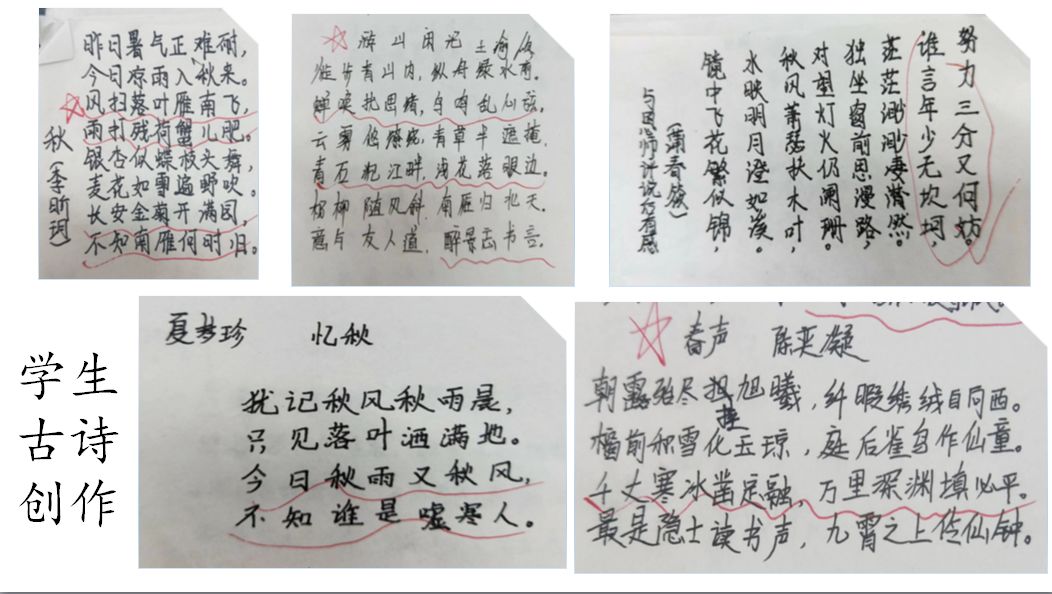 昨日暑气正难耐，
今日凉雨入秋来。
风扫落叶雁南飞，
雨打残荷蟹儿肥。
银杏似蝶枝头舞，
麦花如雪遍野吹。
长安金菊开满园，
不知南雁何时归。
秋（季昕珂）
游山因记
徒步青山内，纵舟绿水前。
蝉噪扰思绪，鸟鸣乱仙弦。
云雾悠缭绕，青草半遮掩。
青石 江畔，浅花落眼边。
杨柳随风斜，南雁归北天。
意与友人道，醉景去书言。
努力三分又何妨。
谁言年少无坎坷，
茫茫渺渺凄潸然。
独坐窗前思漫路，
对塑灯火仍阑珊。
秋风萧瑟扶木叶，
水映明月澄如溪。
镜中飞花繁似锦，
（蒲春筱）
与恩师评说后有感
夏梦珍 忆秋
犹记秋风秋雨晨，
只见落叶洒满地。
今日秋雨又秋风，
不知谁是嘘寒人。
学生
古诗
创作
春声 陈奕凝
朝露殆尽 旭曦，纤暇绣绒自向西。
檐前积雪化玉琼，庭后雀鸟作仙童。
千丈寒冰凿足融，万里深渊填必平。
最是隐士读书声，九霄之上传仙钟。